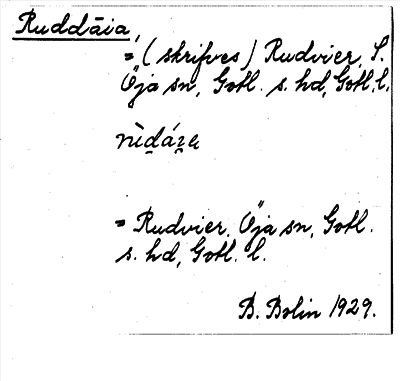 Ruddāia,
= (skrifves) Rudvier, S.
Öja sn, Gotl. s. hd, Gotl. l.
nìḏáẕa
= Rudvier, Öja sn, Gotl.
s. hd, Gotl. l.
B. Bolin 1929.